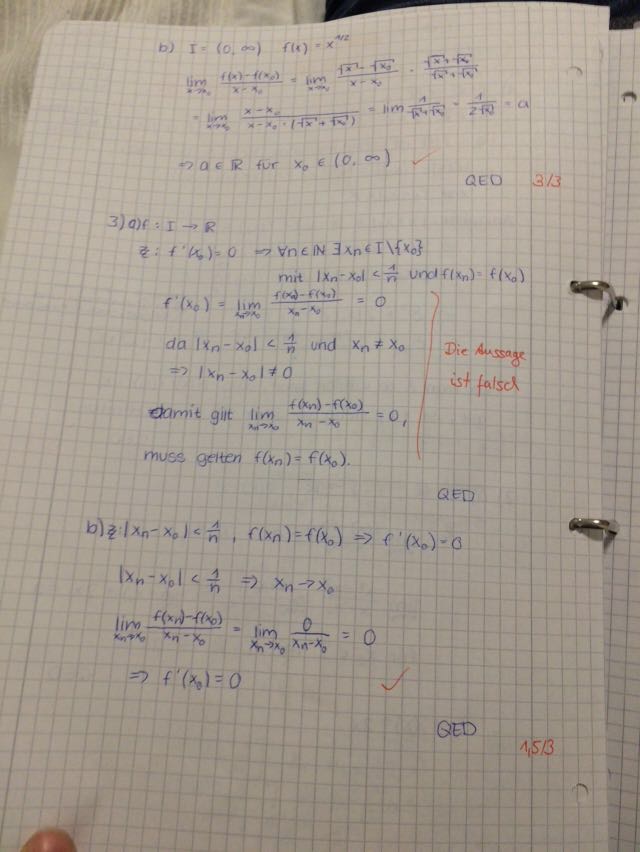 b) I = (0, ∞) f(x) = x^1/2
lim x→x₀ (f(x)-f(x₀))/(x-x₀) = lim x→x₀ (√x - √x₀)/(x-x₀) · (√x+√x₀)/(√x+√x₀)
= lim x→x₀ (x-x₀)/(x-x₀ · (√x + √x₀)) = lim 1/(√x+√x₀) = 1/(2√x₀) = a
⇒ a ∈ ℝ für x₀ ∈ (0, ∞) ✓
QED 3/3
3) a) f : I → ℝ
z: f'(x₀) = 0 ⇒ ∀n ∈ ℕ ∃xₙ ∈ I\{x₀}
mit |xₙ-x₀| < 1/n und f(xₙ) = f(x₀)
f'(x₀) = lim xₙ→x₀ (f(xₙ)-f(x₀))/(xₙ-x₀) = 0
da |xₙ-x₀| < 1/n und xₙ ≠ x₀
⇒ |xₙ-x₀| ≠ 0
Die Aussage
ist falsch
damit gilt lim xₙ→x₀ (f(xₙ)-f(x₀))/(xₙ-x₀) = 0,
muss gelten f(xₙ) = f(x₀).
QED
b) z: |xₙ-x₀| < 1/n, f(xₙ) = f(x₀) ⇒ f'(x₀) = 0
|xₙ-x₀| < 1/n ⇒ xₙ → x₀
lim xₙ→x₀ (f(xₙ)-f(x₀))/(xₙ-x₀) = lim xₙ→x₀ 0/(xₙ-x₀) = 0
⇒ f'(x₀) = 0 ✓
QED
1,5/3